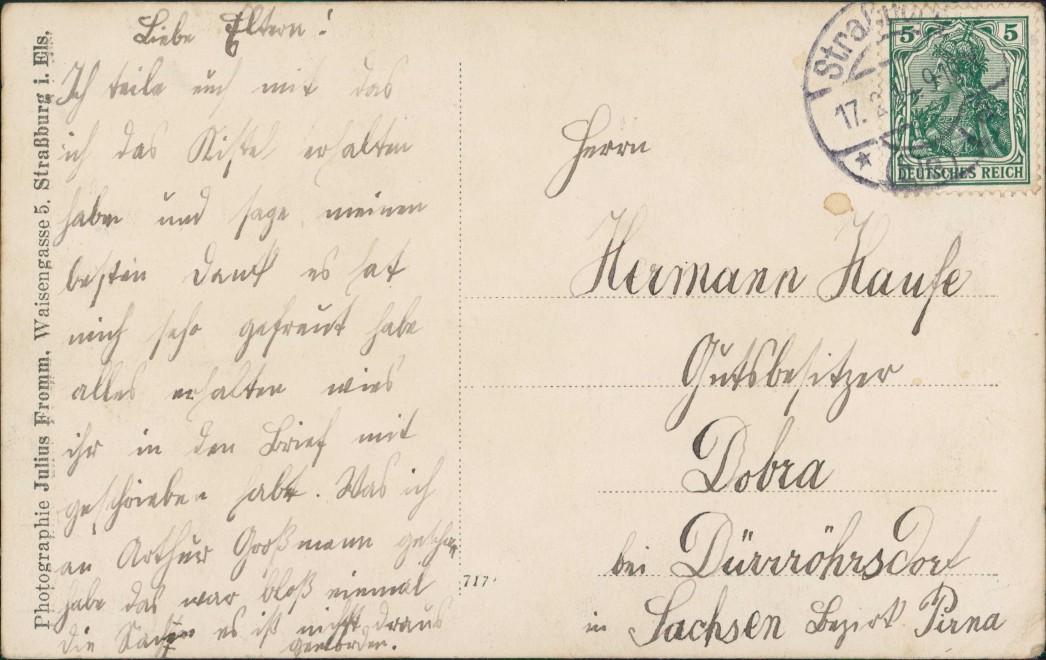 Liebe Eltern!
Ich teile euch mit das
ich das Kistel erhalten
habe und sage meinen
besten Dank es hat
mich sehr gefreut habe
alles erhalten wies
ihr in den Brief mit
geschrieben habt. Was ich
an Arthur Großmann
habe das war bloß einmal
die es ist nicht draus
geworden.
Photographie Julius Fromm, Waisengasse 5, Straßburg i. Els.
717
Straßburg
17.
5 5
DEUTSCHES REICH
Herrn
Hermann Haufe
Gutsbesitzer
Dobra
bei Dürrröhrsdorf
in Sachsen Bezirk Pirna